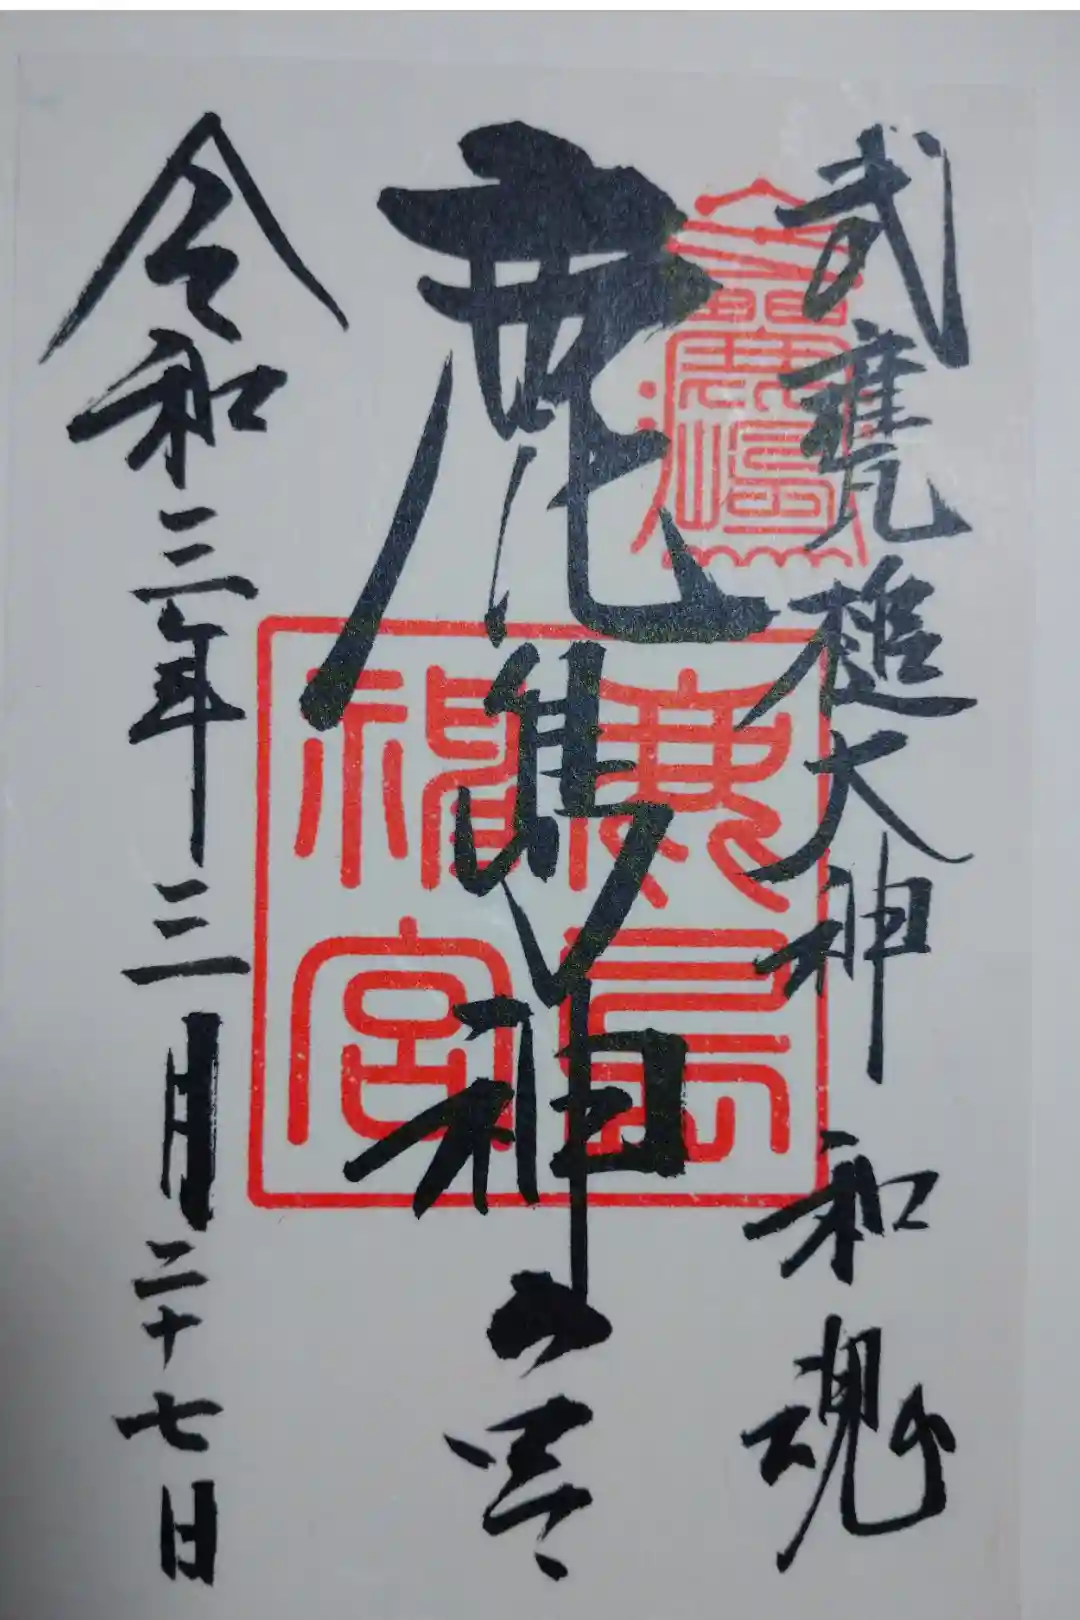 武甕槌大神 和魂
鹿島神宮
令和三年三月二十七日
鹿島
神宮